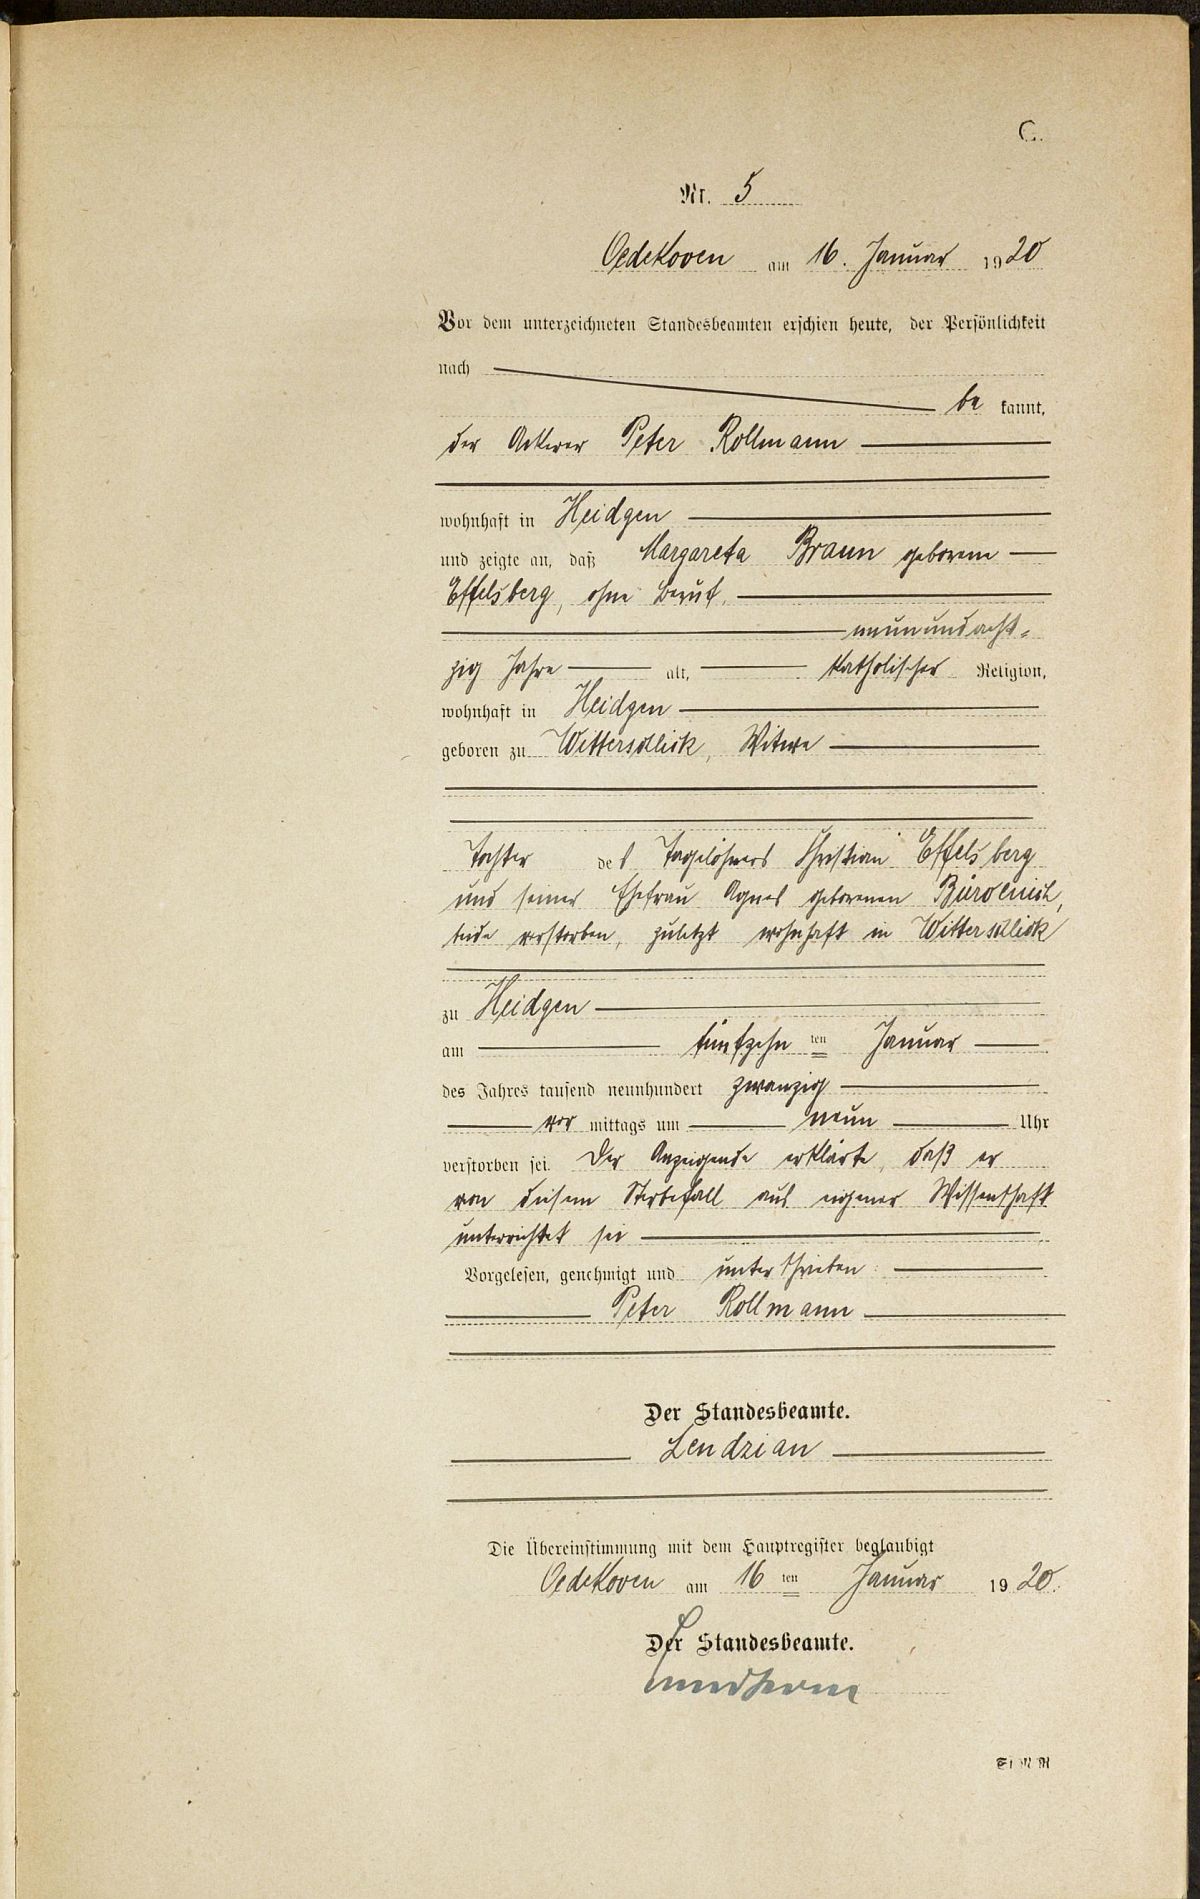 C.
Nr. 5
Oedekoven am 16. Januar 1920
Vor dem unterzeichneten Standesbeamten erschien heute, der Persönlichkeit
nach
be kannt,
der Ackerer Peter Rollmann
wohnhaft in Heidgen
und zeigte an, daß Margareta Braun geborene
Effelsberg, ohne Beruf,
neunundacht-
zig Jahre alt, katholischer Religion,
wohnhaft in Heidgen
geboren zu Witterschlick, Witwe
Tochter des Tagelöhners Christian Effelsberg
und seiner Ehefrau Agnes geborenen
beide verstorben, zuletzt wohnhaft in Witterschlick
zu Heidgen
am fünfzehn ten Januar
des Jahres tausend neunhundert zwanzig
vor mittags um neun Uhr
verstorben sei. Der Anzeigende erklärte, daß er
von diesem Sterbefall aus eigener Wissenschaft
unterrichtet sei
Vorgelesen, genehmigt und unterschrieben
Peter Rollmann
Der Standesbeamte.
Lendzian
Die Übereinstimmung mit dem Hauptregister beglaubigt
Oedekoven am 16 ten Januar 1920.
Der Standesbeamte.